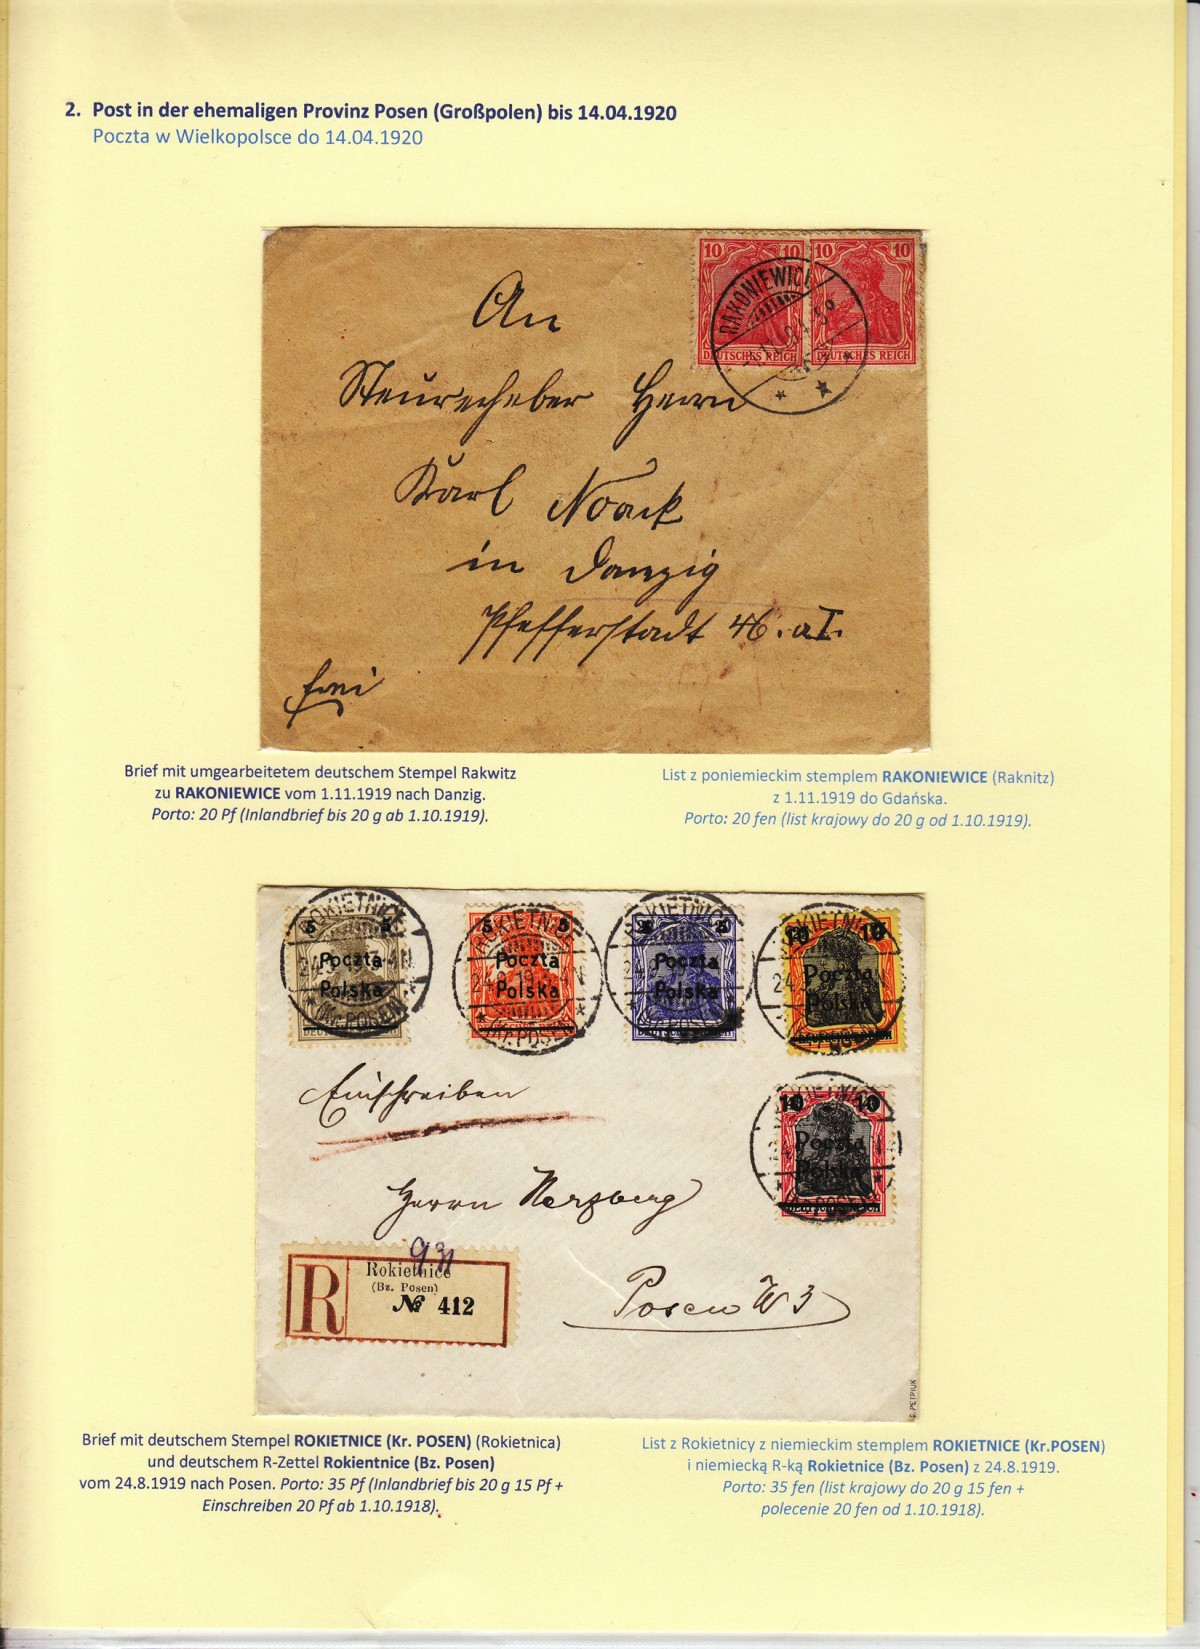 2. Post in der ehemaligen Provinz Posen (Großpolen) bis 14.04.1920
Poczta w Wielkopolsce do 14.04.1920
10 10 10 10
RAKONIEWICE
DEUTSCHES REICH DEUTSCHES REICH
An
Steuererheber Herrn
Karl Noack
in Danzig
Pfefferstadt 46. a I.
frei
Brief mit umgearbeitetem deutschem Stempel Rakwitz
zu RAKONIEWICE vom 1.11.1919 nach Danzig.
Porto: 20 Pf (Inlandbrief bis 20 g ab 1.10.1919).
List z poniemieckim stemplem RAKONIEWICE (Raknitz)
z 1.11.1919 do Gdańska.
Porto: 20 fen (list krajowy do 20 g od 1.10.1919).
ROKIETNICE
5 5
Poczta
Polska
(Kr. POSEN)
ROKIETNICE
5 5
Poczta
Polska
24.8.19
(Kr. POSEN)
ROKIETNICE
5 5
Poczta
Polska
(Kr. POSEN)
ROKIETNICE
10 10
Poczta
Polska
ROKIETNICE
10 10
Poczta
Polska
Einschreiben
Herrn Herzberg
Posen W 3
R
Rokietnice
(Bz. Posen)
№ 412
S. PETRIUK
Brief mit deutschem Stempel ROKIETNICE (Kr. POSEN) (Rokietnica)
und deutschem R-Zettel Rokientnice (Bz. Posen)
vom 24.8.1919 nach Posen. Porto: 35 Pf (Inlandbrief bis 20 g 15 Pf +
Einschreiben 20 Pf ab 1.10.1918).
List z Rokietnicy z niemieckim stemplem ROKIETNICE (Kr.POSEN)
i niemiecką R-ką Rokietnice (Bz. Posen) z 24.8.1919.
Porto: 35 fen (list krajowy do 20 g 15 fen +
polecenie 20 fen od 1.10.1918).